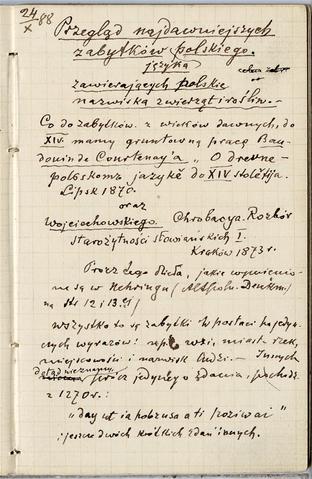 24/X 88
Przegląd najdawniejszych
zabytków polskiego.
języka
zawierających polskie
nazwiska zwierząt i roślin. —
Co do zabytków z wieków dawnych, do
XIV. mamy gruntowną pracę Bau-
douin de Courtenay'a „O drevne-
polskomz jazykě do XIV stolětija.
Lipsk 1870.
oraz
Wojciechowskiego. Chrobacya. Rozbiór
starożytności słowiańskich I.
Kraków 1873 r.
Prócz tego dzieła, jakie wymienio-
ne są w Nehringu (Altpoln. Denkm.)
na str 12 i 13.
Wszystko to są zabytki w postaci pojedyn-
czych wyrazów: np. wsi, miast rzek,
miejscowości i nazwisk ludzi. — Innych
dotąd nieznamy
prócz jednego zdania, pochodz.
z 1270 r:
„day ut ia pobrusa a ti poziwai"
i jeszcze dwóch krótkich zdań innych.